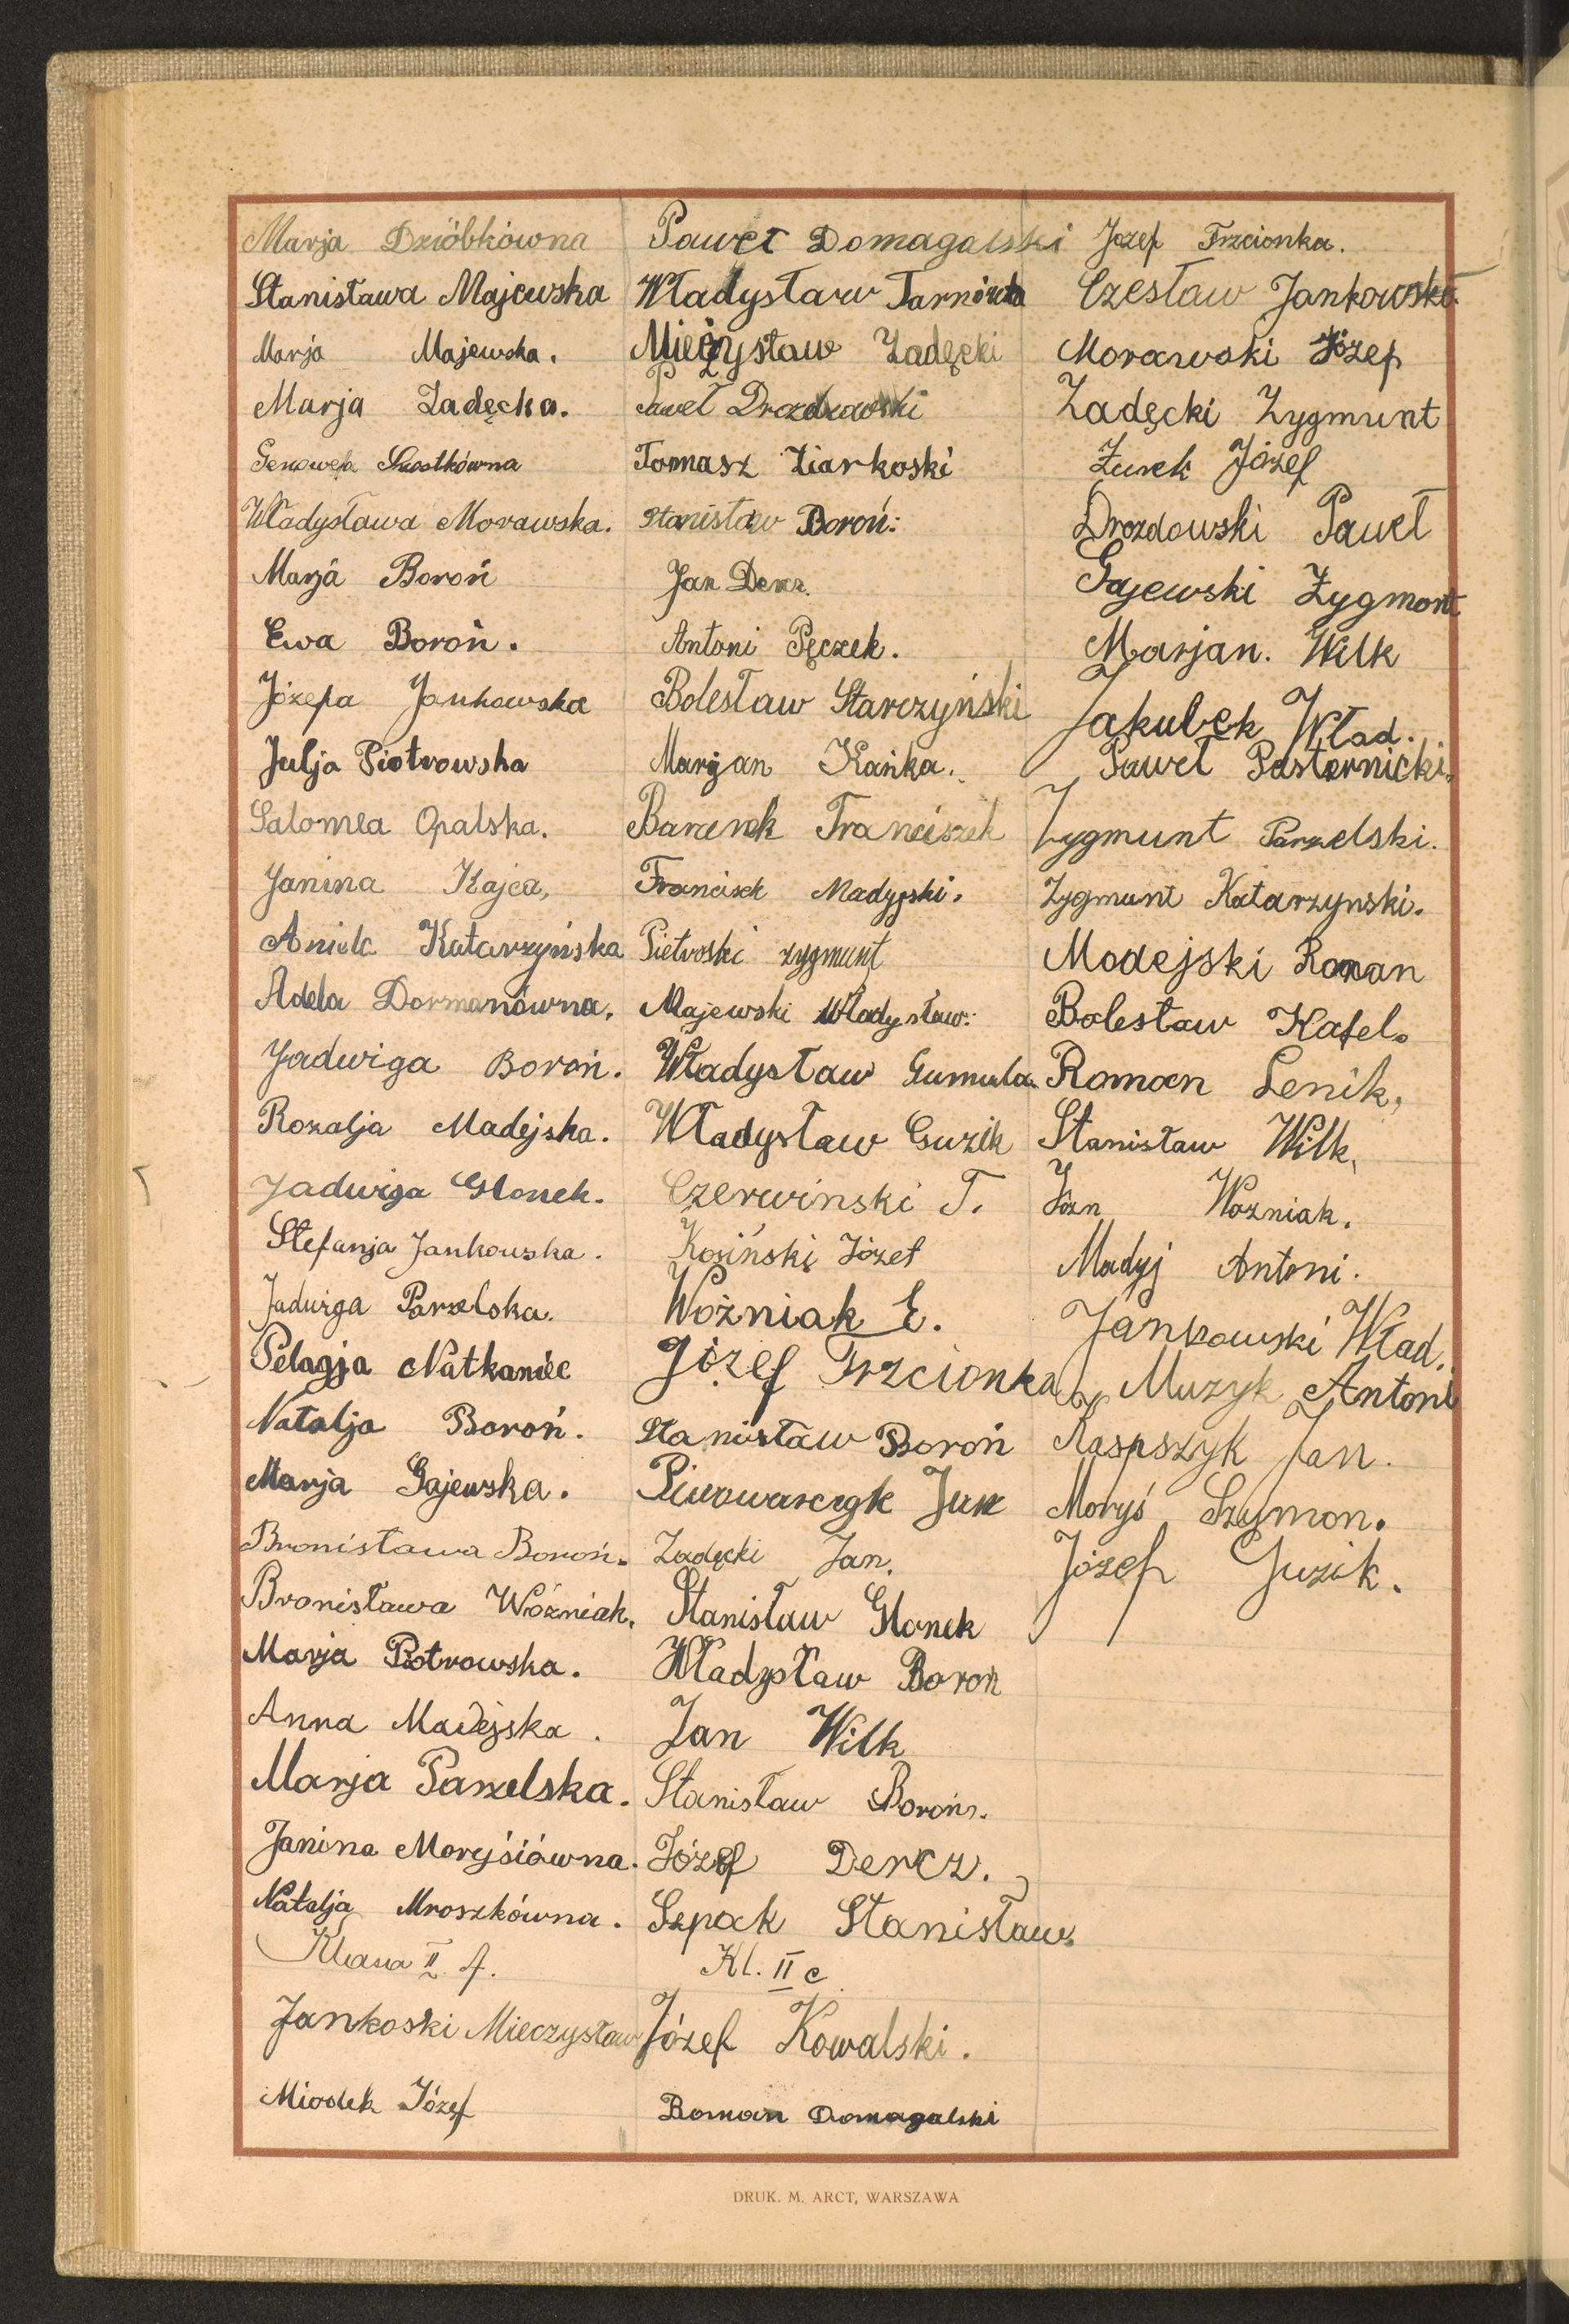 Marja Dzióbkówna
Stanisława Majewska
Marja Majewska.
Marja Zadęcka.
Genowefa
Władysława Morawska.
Marja Boroń
Ewa Boroń.
Józefa Jankowska
Julja Piotrowska
Salomea Opalska.
Janina Kajca,
Aniela Katarzyńska
Adela Dormanówna.
Jadwiga Boroń.
Rozalja Madejska.
Jadwiga Glonek.
Stefanja Jankowska.
Jadwiga Parzelska.
Pelagja Natkaniec
Natalja Boroń.
Marja Gajewska.
Bronisława Boroń.
Bronisława Woźniak.
Marja Piotrowska.
Anna Madejska.
Marja Parzelska.
Janina Moryśiówna.
Natalja Mroszkówna.
Klasa II
Jankoski Mieczysław
Miodek Józef
Paweł Domagalski
Władysław Tarnówka
Mieczysław Zadęcki
Paweł Drozdowski
Tomasz Ziarkoski
Stanisław Boroń.
Jan Dercz.
Antoni Pęczek.
Bolesław Starczyński
Marjan Kańka.
Franciszek
Francisek Madyjski.
Pietroski zygmunt
Majewski Władysław.
Władysław Gumula.
Władysław Guzik
Czerwinski T.
Kosiński Józef
Woźniak E.
Józef Trzcionka
Stanisław Boroń
Piwowarczyk Jan
Zadęcki Jan.
Stanisław Glonek
Władysław Boroń
Jan Wilk
Stanisław Boroń.
Józef Dercz.
Szpak Stanisław.
Kl. II c
Józef Kowalski.
Roman Domagalski
Jozef Trzcionka.
Czesław Jankowski
Morawski Józef
Zadęcki Zygmunt
Żurek Józef
Drozdowski Paweł
Gajewski Zygmont
Marjan. Wilk
Jakubek Wład.
Paweł Pasternicki.
Zygmunt Parzelski.
Zygmunt Katarzynski.
Modejski Roman
Bolesław Kafel.
Roman Lenik,
Stanisław Wilk,
Jan Woźniak.
Madyj Antoni.
Jankowski Wład.
Muzyk Antoni
Kaspszyk Jan.
Moryś Szymon.
Józef Guzik.
DRUK. M. ARCT, WARSZAWA